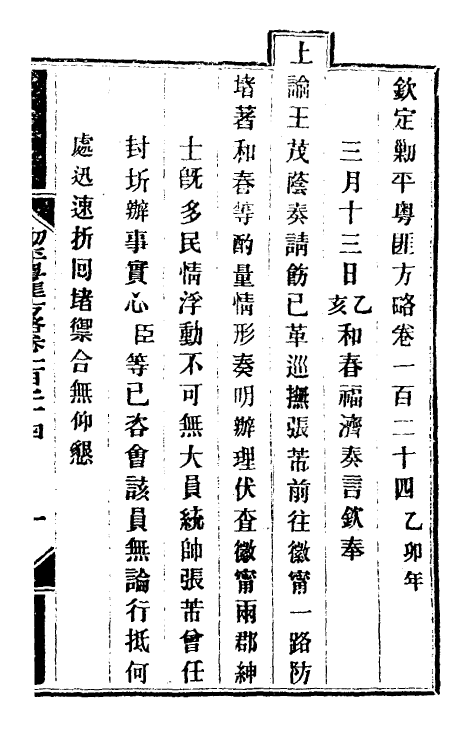 欽定勦平粵匪方略卷一百二十四乙卯年
三月十三日乙亥和春福濟奏言欽奉
上諭王茂蔭奏請飭已革巡撫張芾前往徽甯一路防
堵著和春等酌量情形奏明辦理伏查徽甯兩郡紳
士既多民情浮動不可無大員統帥張芾曾任
封圻辦事實心臣等已咨會該員無論行抵何
處迅速折回堵禦合無仰懇
卷一百二十四
一